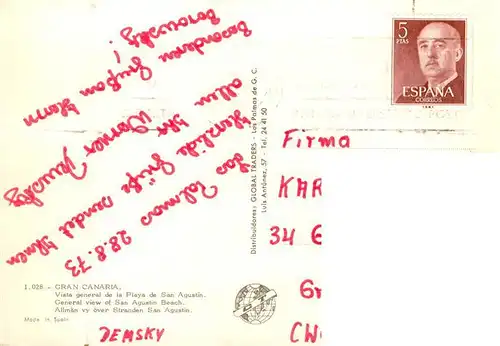 Las Palmas 28.8.73
Herzliche Grüße sendet Ihnen
allen Ihr Werner
besonderen Gruß an Herrn
!
5
PTAS
ESPAÑA
CORREOS
Distribuidores: GLOBAL TRADERS - Las Palmas de G. C.
Luis Antúnez, 57 - Tel. 24 41 50
Firma
KAR
34 G
1.028 - GRAN CANARIA.
Vista general de la Playa de San Agustín.
General view of San Agustin Beach.
Allmän vy över Stranden San Agustin.
Made in Spain
DEMSKY